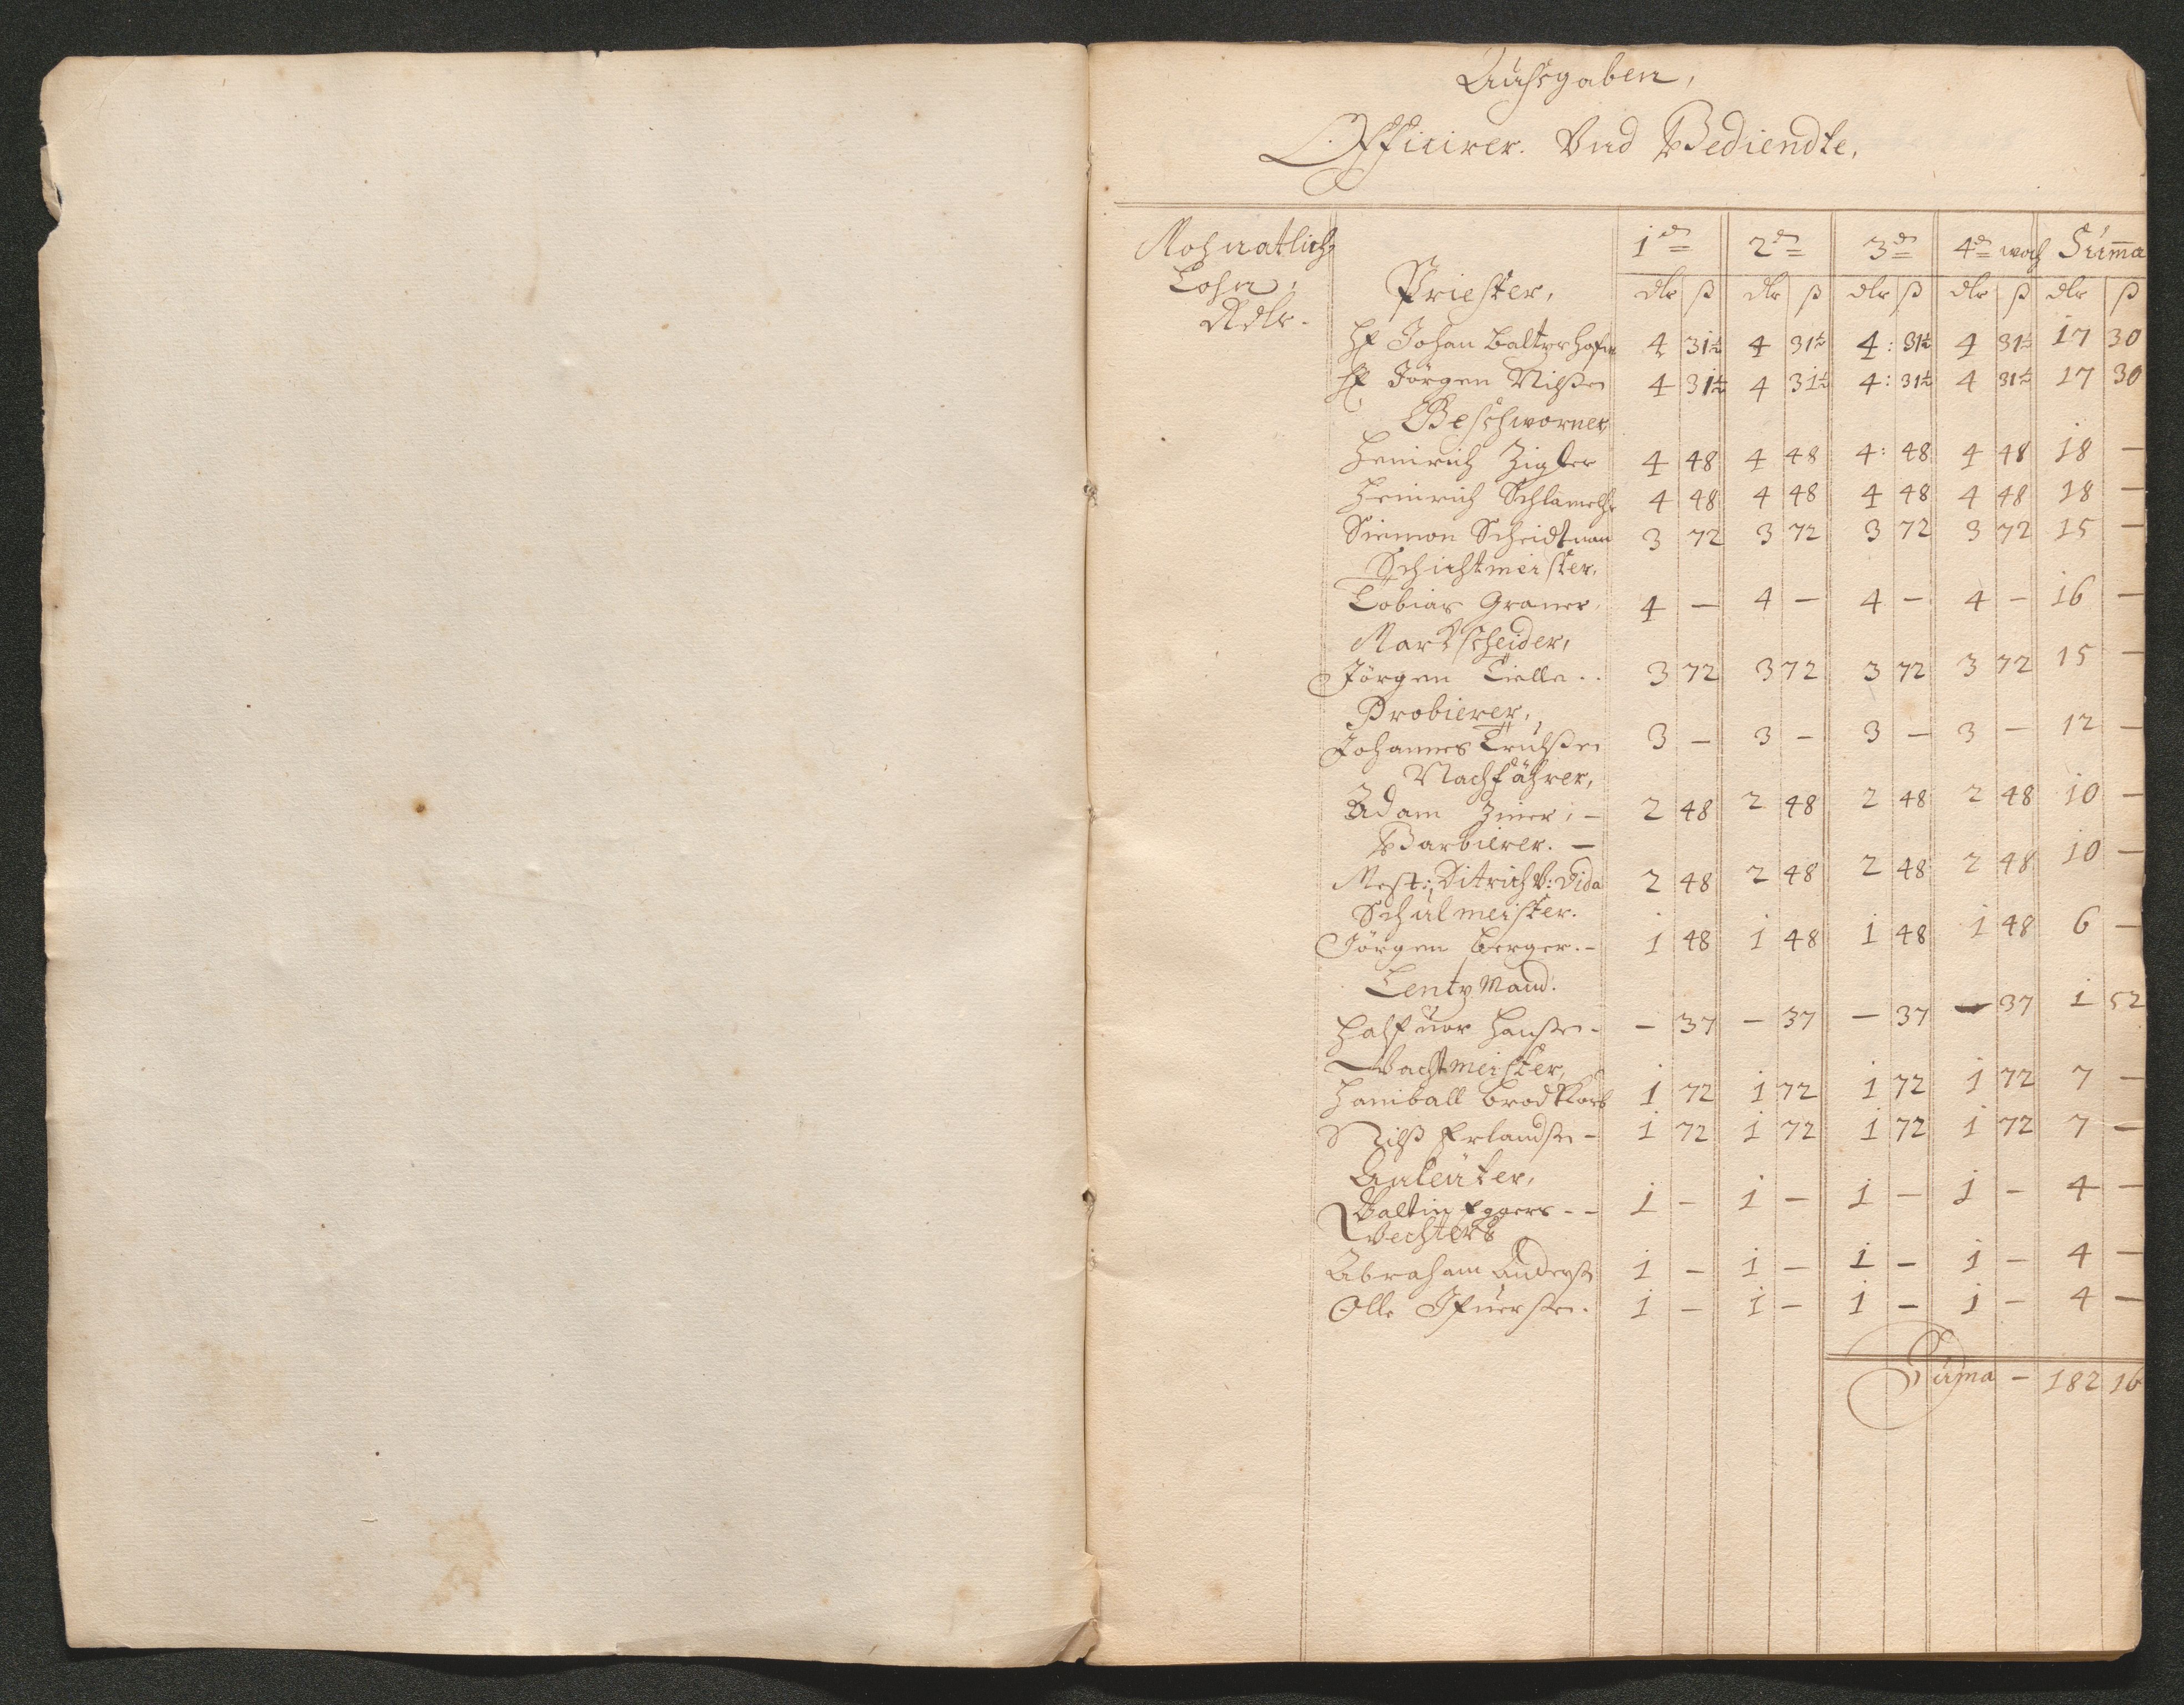 Auhsgaben,
Officirer. Vnd Bediendte,
Mohnatlich Lohn, Rdlr. Priester, 1 2 3 4 woch Suma
dlr ß dlr ß dlr ß dlr ß dlr ß
Johan 4 31½ 4 31½ 4: 31½ 4 31½ 17 30
Jörgen Nilßen 4 31½ 4 31½ 4: 31½ 4 31½ 17 30
Geschworner,
Heinrich Zigler 4 48 4 48 4: 48 4 48 18 —
Heinrich 4 48 4 48 4 48 4 48 18 —
Siemon Scheidtman 3 72 3 72 3 72 3 72 15 —
Schichtmeister,
Tobias Graner, 4 — 4 — 4 — 4 — 16 —
Markscheider,
Jörgen Tielle.. 3 72 3 72 3 72 3 72 15 —
Probierer,
Johannes Trulßen 3 — 3 — 3 — 3 — 12 —
Nachfährer,
Adam Ziner; — 2 48 2 48 2 48 2 48 10 —
Barbierer. —
Mest:, Ditrich V: 2 48 2 48 2 48 2 48 10 —
Schulmeister.
Jörgen Berger. — 1 48 1 48 1 48 1 48 6 —
Lentzmand.
Halfuor Hanßen — — 37 — 37 — 37 — 37 1 52
Wachtmeister,
Haniball Brodtkorb 1 72 1 72 1 72 1 72 7 —
Nilß Erlandßen — 1 72 1 72 1 72 1 72 7 —
Valtin Eggers — — 1 — 1 — 1 — 1 — 4 —
Wechters
Abraham Anderß 1 — 1 — 1 — 1 — 4 —
Olle Ifuerßen. 1 — 1 — 1 — 1 — 4 —
Suma — 182 16